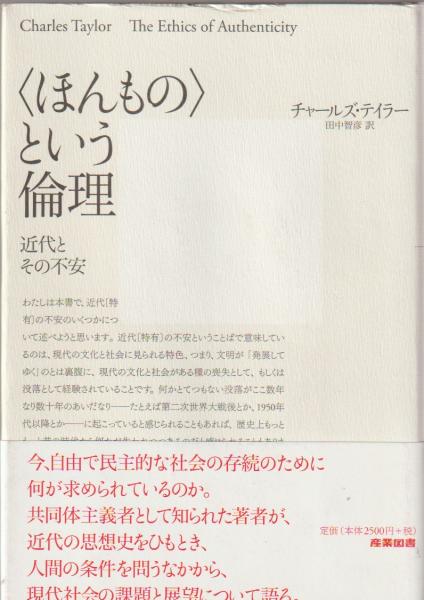 Charles Taylor The Ethics of Authenticity
〈ほんもの〉
という
倫理
近代と
その不安
チャールズ・テイラー
田中智彦 訳
わたしは本書で、近代[特
有]の不安のいくつかにつ
いて述べようと思います。近代[特有]の不安ということばで意味してい
るのは、現代の文化と社会に見られる特色、つまり、文明が「発展して
ゆく」のとは裏腹に、現代の文化と社会がある種の喪失として、もしくは
没落として経験されていることです。何かとてつもない没落がここ数年
なり数十年のあいだなり――たとえば第二次世界大戦後とか、1950年
代以降とか――に起こっていると感じられることもあれば、歴史上もっと
今、自由で民主的な社会の存続のために
何が求められているのか。
共同体主義者として知られた著者が、
近代の思想史をひもとき、
人間の条件を問うなかから、
現代社会の課題と展望について語る。
定価(本体2500円+税)
産業図書